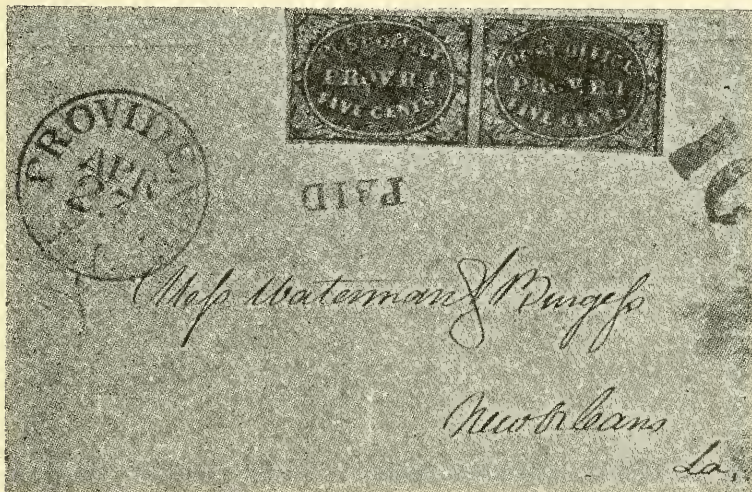 POST OFFICE
PROV. R.I.
FIVE CENTS
POST OFFICE
PROV. R.I.
FIVE CENTS
PROVIDEN
APR
27
PAID
10
Mess Waterman & Burgess
New Orleans
La,